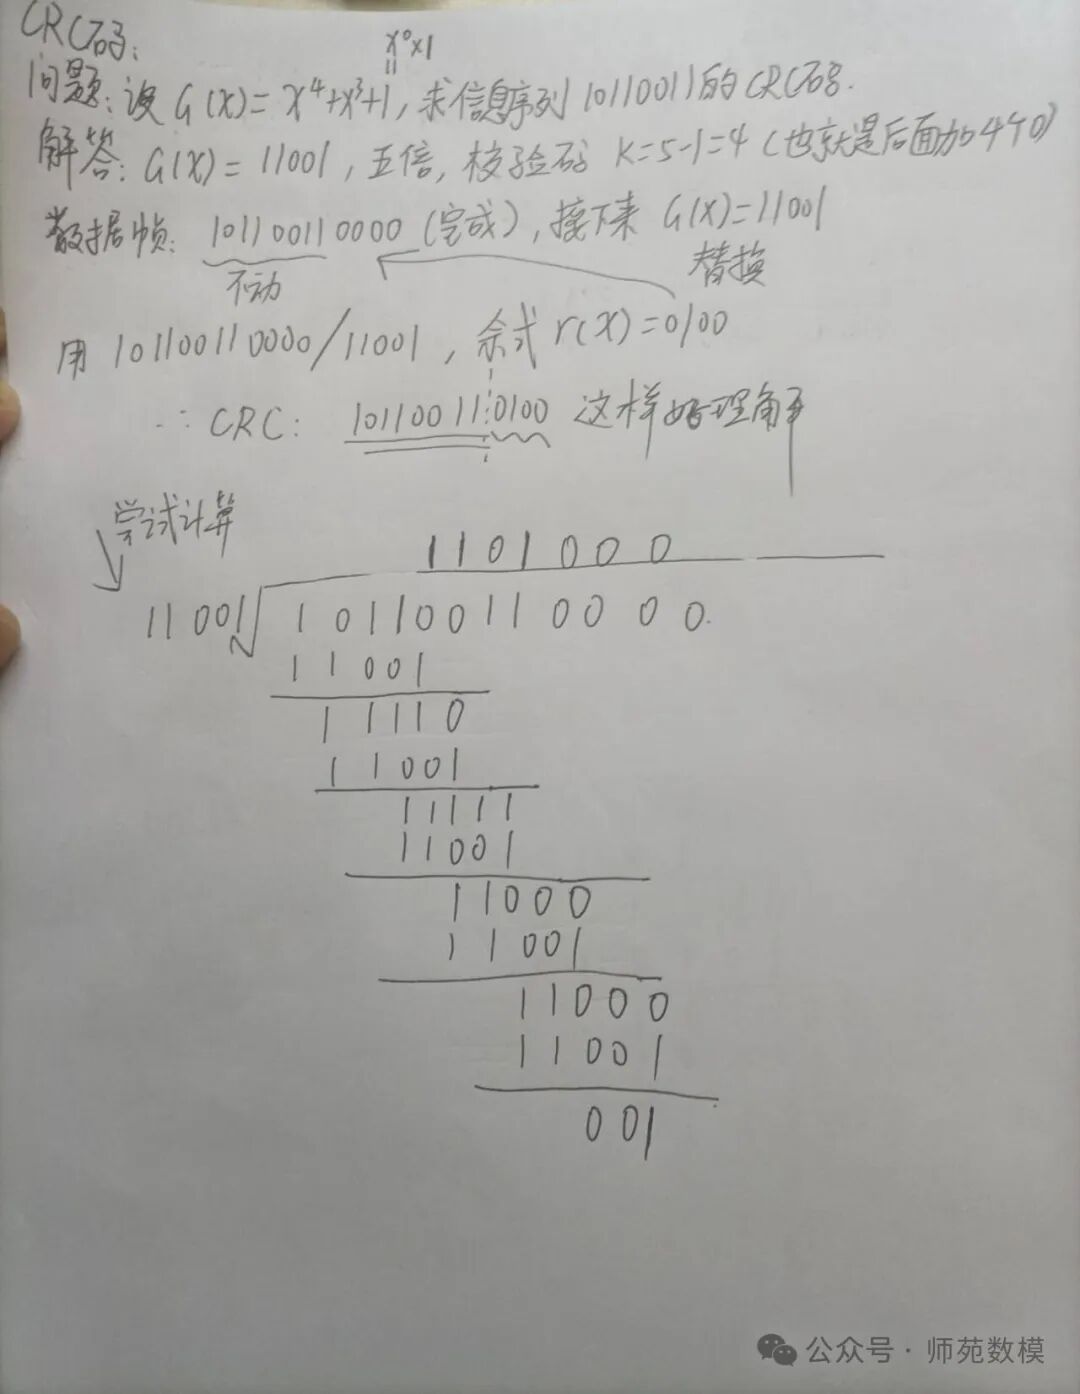 CRC码:
x⁰×1
问题:设 G(x)= x⁴+x³+1,求信息序列10110011的CRC码.
解答:G(x)= 11001,五倍,校验码 K=5-1=4(也就是后面加4个0)
数据帧: 101100110000(完成),接下来 G(x)=11001
不动
替换
用 101100110000/11001,余式 r(x)=0100
∴ CRC: 10110011:0100 这样好理解
尝试计算
1101000
11001 101100110000.
11001
11110
11001
11111
11001
11000
11001
11000
11001
001
公众号·师苑数模